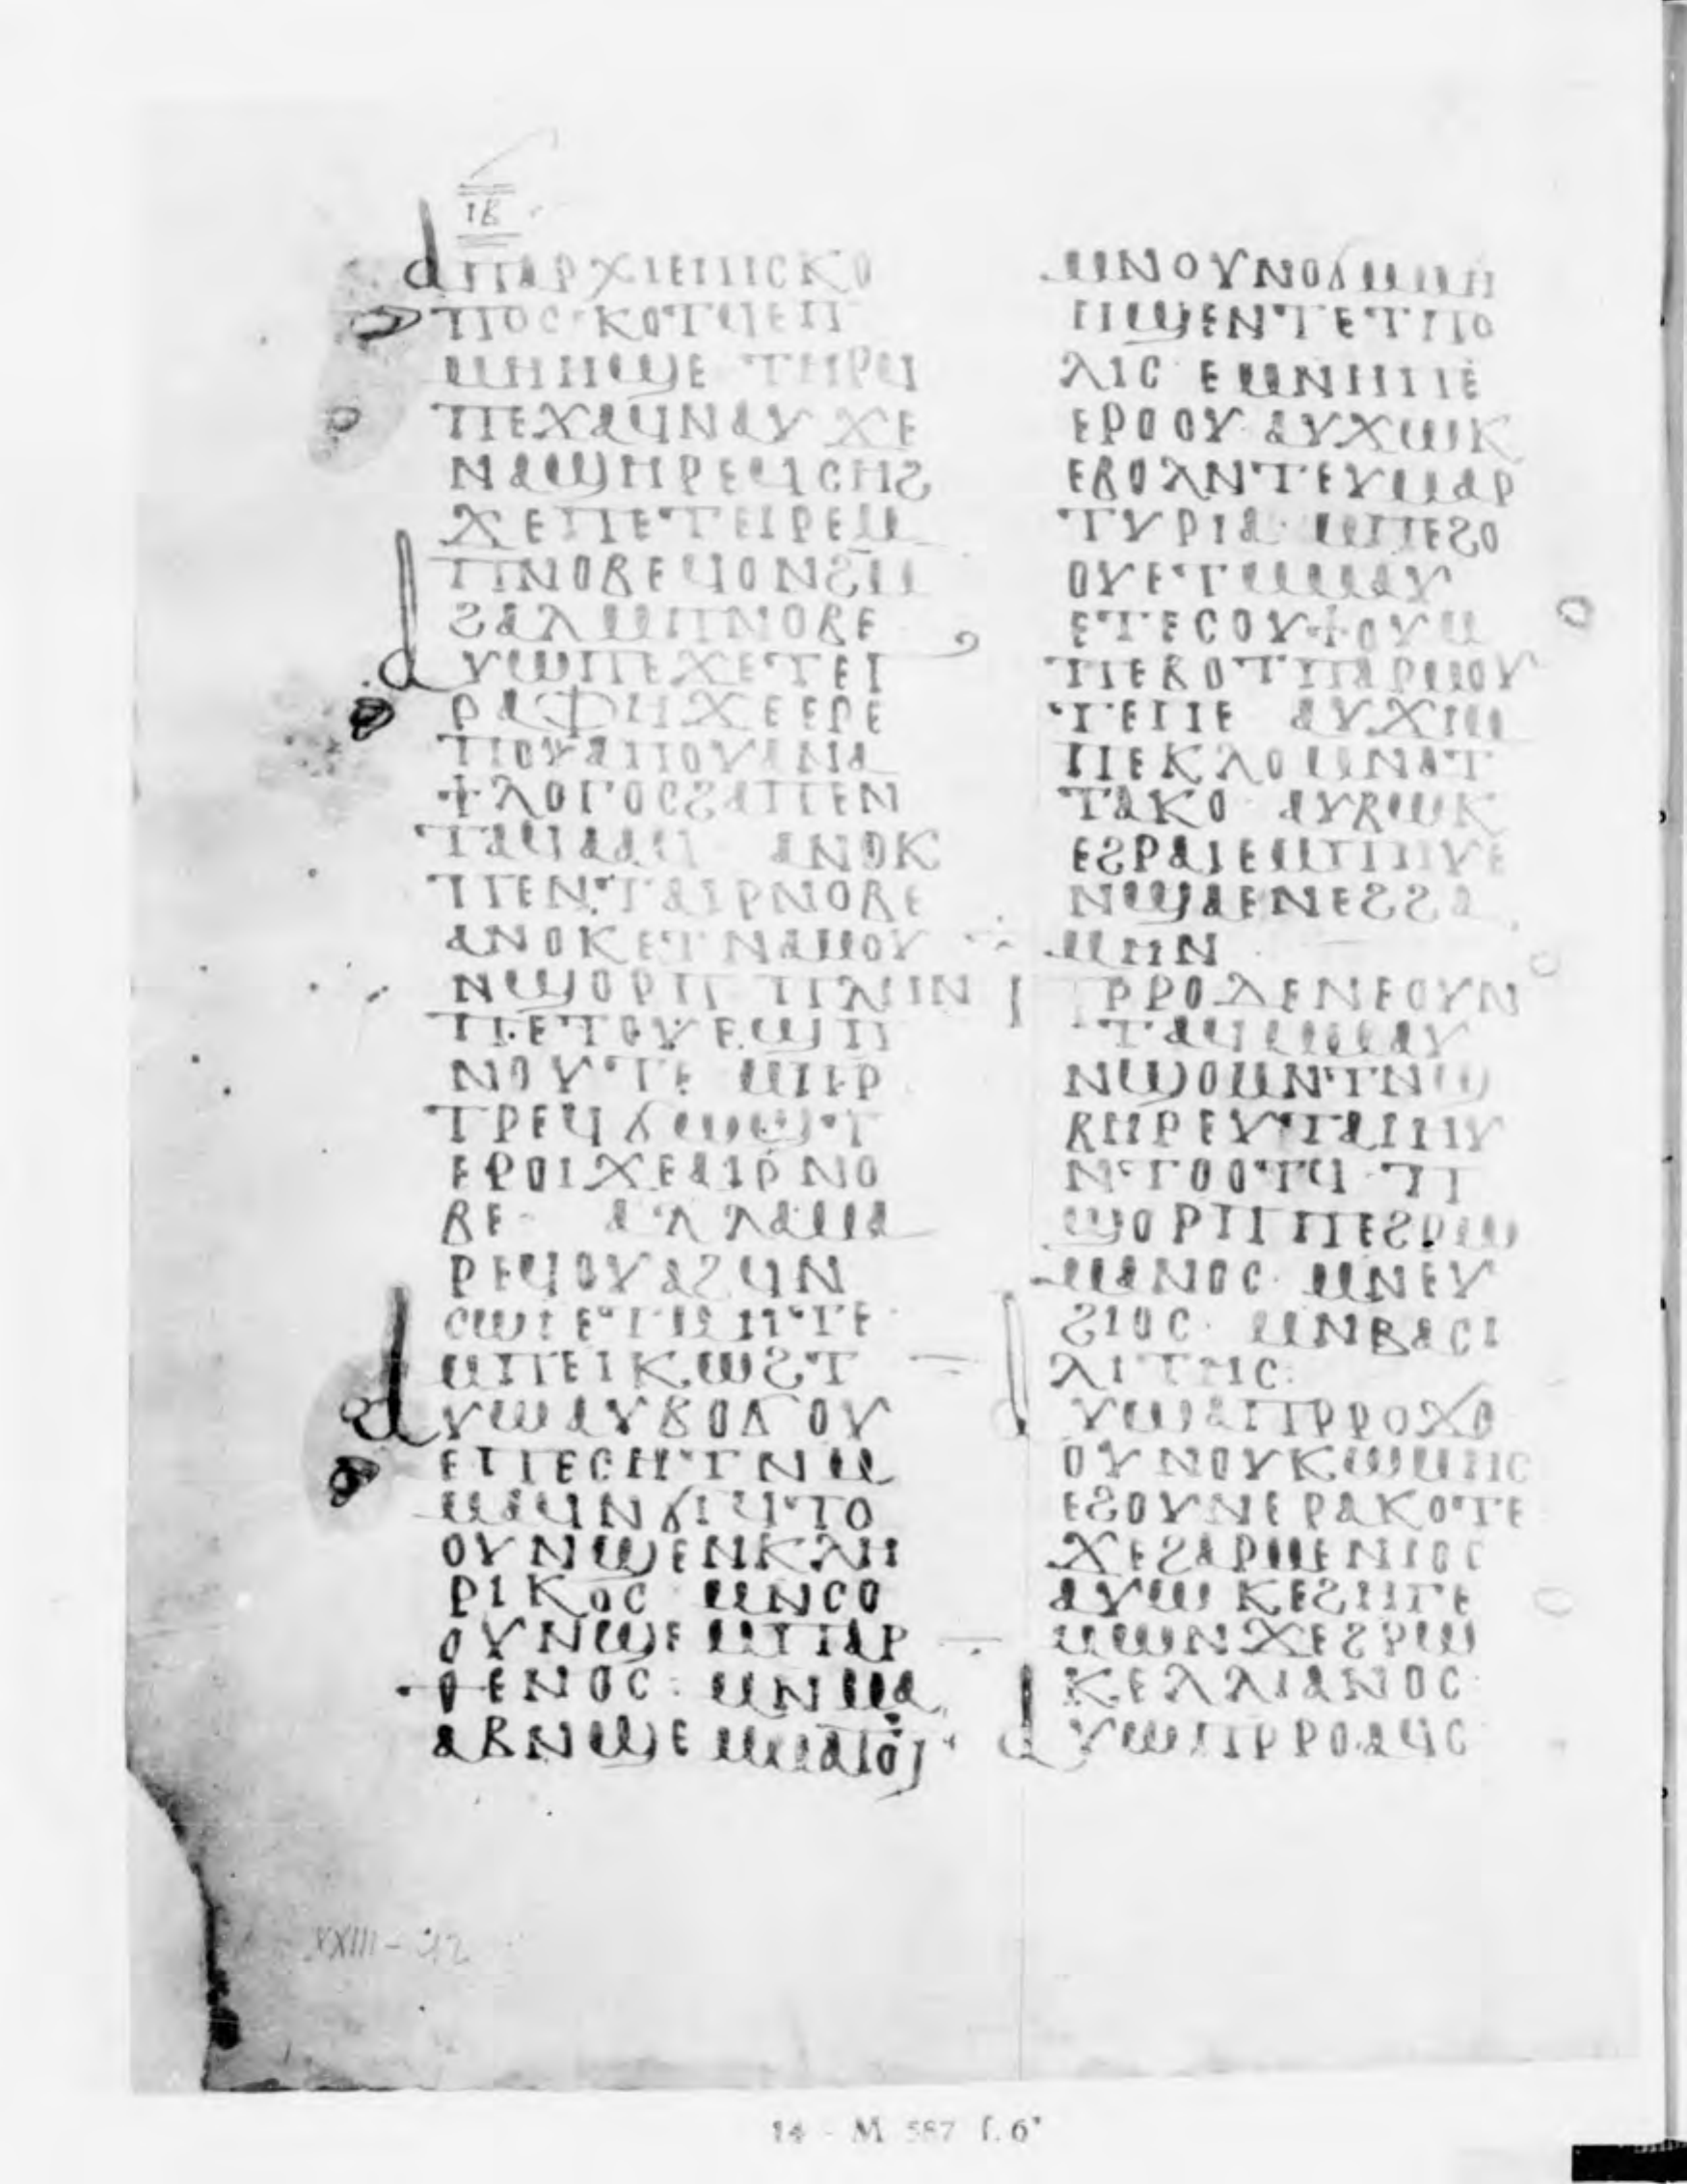 ⲓⲃ
ⲁⲡⲁⲣⲭⲓⲉⲡⲓⲥⲕⲟ
ⲡⲟⲥ ⲕⲟⲧϥⲉⲡ
ⲙⲏⲏϣⲉ ⲧⲏⲣϥ
ⲡⲉϫⲁϥⲛⲁⲩ ϫⲉ
ⲛⲁϣⲏⲣⲉ ϥⲥⲏϩ
ϫⲉⲡⲉⲧⲉⲓⲣⲉⲙ
ⲡⲛⲟⲃⲉ ϥⲟⲛϩⲙ
ϩⲁⲗ ⲙⲡⲛⲟⲃⲉ
ⲁⲩⲱ ⲡⲉϫⲉⲧⲉⲓ
ⲣⲁⲫⲏ ϫⲉⲉⲣⲉ
ⲡⲟⲩⲁⲡⲟⲩⲁⲛⲁ
ϯⲗⲟⲅⲟⲥϩⲁⲡⲉⲛ
ⲧⲁϥⲁⲁϥ ⲁⲛⲟⲕ
ⲡⲉⲛⲧⲁⲓⲣⲛⲟⲃⲉ
ⲁⲛⲟⲕ ⲉⲧⲛⲁⲙⲟⲩ
ⲛϣⲟⲣⲡ ⲡⲗⲏⲛ
ⲡⲉⲧⲟⲩⲉϣⲡ
ⲛⲟⲩⲧⲉ ⲙⲡⲣ
ⲧⲣⲉϥϭⲱϣⲧ
ⲉⲣⲟⲓϫⲉⲁⲓⲣⲛⲟ
ⲃⲉ ⲁⲗⲗⲁⲙⲁ
ⲣⲉϥⲟⲩⲁϩϥⲛ
ⲥⲱⲓ ⲉⲧⲙⲏⲧⲉ
ⲙⲡⲉⲓⲕⲱϩⲧ
ⲁⲩⲱ ⲁⲩϥⲟϭⲟⲩ
ⲉⲡⲉⲥⲏⲧ ⲛⲙ
ⲙⲁϥⲛϭⲓϥⲧⲟ
ⲟⲩⲛϣⲉⲛⲕⲗⲏ
ⲣⲓⲕⲟⲥ ⲙⲛⲥⲟ
ⲟⲩⲛϣⲉ ⲙⲡⲁⲣ
ⲑⲉⲛⲟⲥ ⲙⲛⲙⲁ
ⲁⲃⲛϣⲉ ⲙⲙⲁⲧⲟⲓ
ⲙⲛⲟⲩⲛⲟϭⲙⲙⲏ
ⲏϣⲉⲛⲧⲉⲧⲡⲟ
ⲗⲓⲥ ⲉⲙⲛⲏⲡⲉ
ⲉⲣⲟⲟⲩ ⲁⲩϫⲱⲕ
ⲉⲃⲟⲗⲛⲧⲉⲩⲙⲁⲣ
ⲧⲩⲣⲓⲁ ⲙⲡⲉϩⲟ
ⲟⲩⲉⲧⲙⲙⲁⲩ
ⲉⲧⲉⲥⲟⲩϯⲟⲩⲙ
ⲡⲉⲃⲟⲧ ⲡⲁⲣⲙⲟⲩ
ⲧⲉⲡⲉ ⲁⲩϫⲓⲙ
ⲡⲉⲕⲗⲟⲙⲛⲁⲧ
ⲧⲁⲕⲟ ⲁⲩⲃⲱⲕ
ⲉϩⲣⲁⲓⲉⲙⲡⲏⲩⲉ
ⲛϣⲁⲉⲛⲉϩϩⲁ
ⲙⲏⲛ
ⲡⲣⲣⲟⲇⲉⲛⲉⲟⲩⲛ
ⲧⲁϥⲙⲙⲁⲩ
ⲛϣⲟⲙⲛⲧⲛϣ
ⲃⲏⲣⲉⲩⲧⲁⲓⲏⲩ
ⲛⲧⲟⲟⲧϥ ⲡ
ϣⲟⲣⲡ ⲡⲉϩⲣⲱ
ⲙⲁⲛⲟⲥ ⲙⲛⲉⲩ
ϩⲓⲟⲥ ⲙⲛⲃⲁⲥⲓ
ⲗⲓⲧⲏⲥ
ⲁⲩⲱ ⲁⲡⲣⲣⲟϫⲟ
ⲟⲩ ⲛⲟⲩⲕⲱⲙⲏⲥ
ⲉϩⲟⲩⲛⲉⲣⲁⲕⲟⲧⲉ
ϫⲉϩⲁⲣⲙⲉⲛⲓⲟⲥ
ⲁⲩⲱ ⲕⲉϩⲏⲅⲉ
ⲙⲱⲛϫⲉϩⲣⲱ
ⲕⲉⲗⲗⲓⲁⲛⲟⲥ
ⲁⲩⲱⲡⲣⲣⲟⲁϥⲥ
XXIII - 12
14 - M 587 f. 6ᵛ